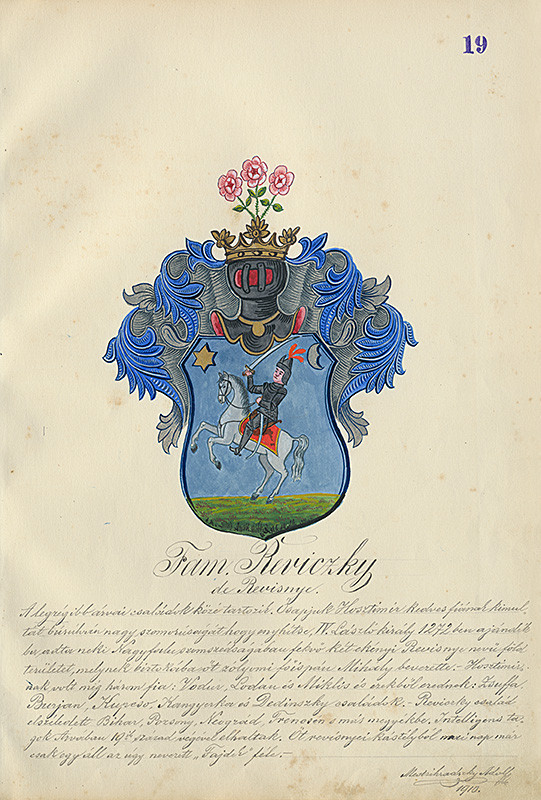 19
Fam. Reviczky
de Revisnye.
A legrégibb árvai családok közé tartozik. Ősapjuk Hosztimir kedves fiának kimul-
tát búsulván nagy szomorúságát hogy enyhítse, IV. László király 1272 ben ajándék
ba adta neki Nagyfalu szomszédságában fekvő két ekényi Revisnye nevű föld
területet, melynek birtokába őt zólyomi főispán Mihály bevezette.- Hosztimir-
nak volt még három fia: Vodur, Lodan és Miklós és ezektől erednek: Zsuffa
Brezjan, Kupcso, Hangyerka és Dedinszky családok.- Reviczky család
elszéledett Bihar, Pozsony, Neograd, Trencsén s más megyékbe. Intelligens ta-
gok Árvában 19dk század végével elhaltak. Öt revisnyei kastélyból mai nap már
csak egy áll az úgy nevezett, Fajdek féle.-
Medzihradszky Adolf
1910.